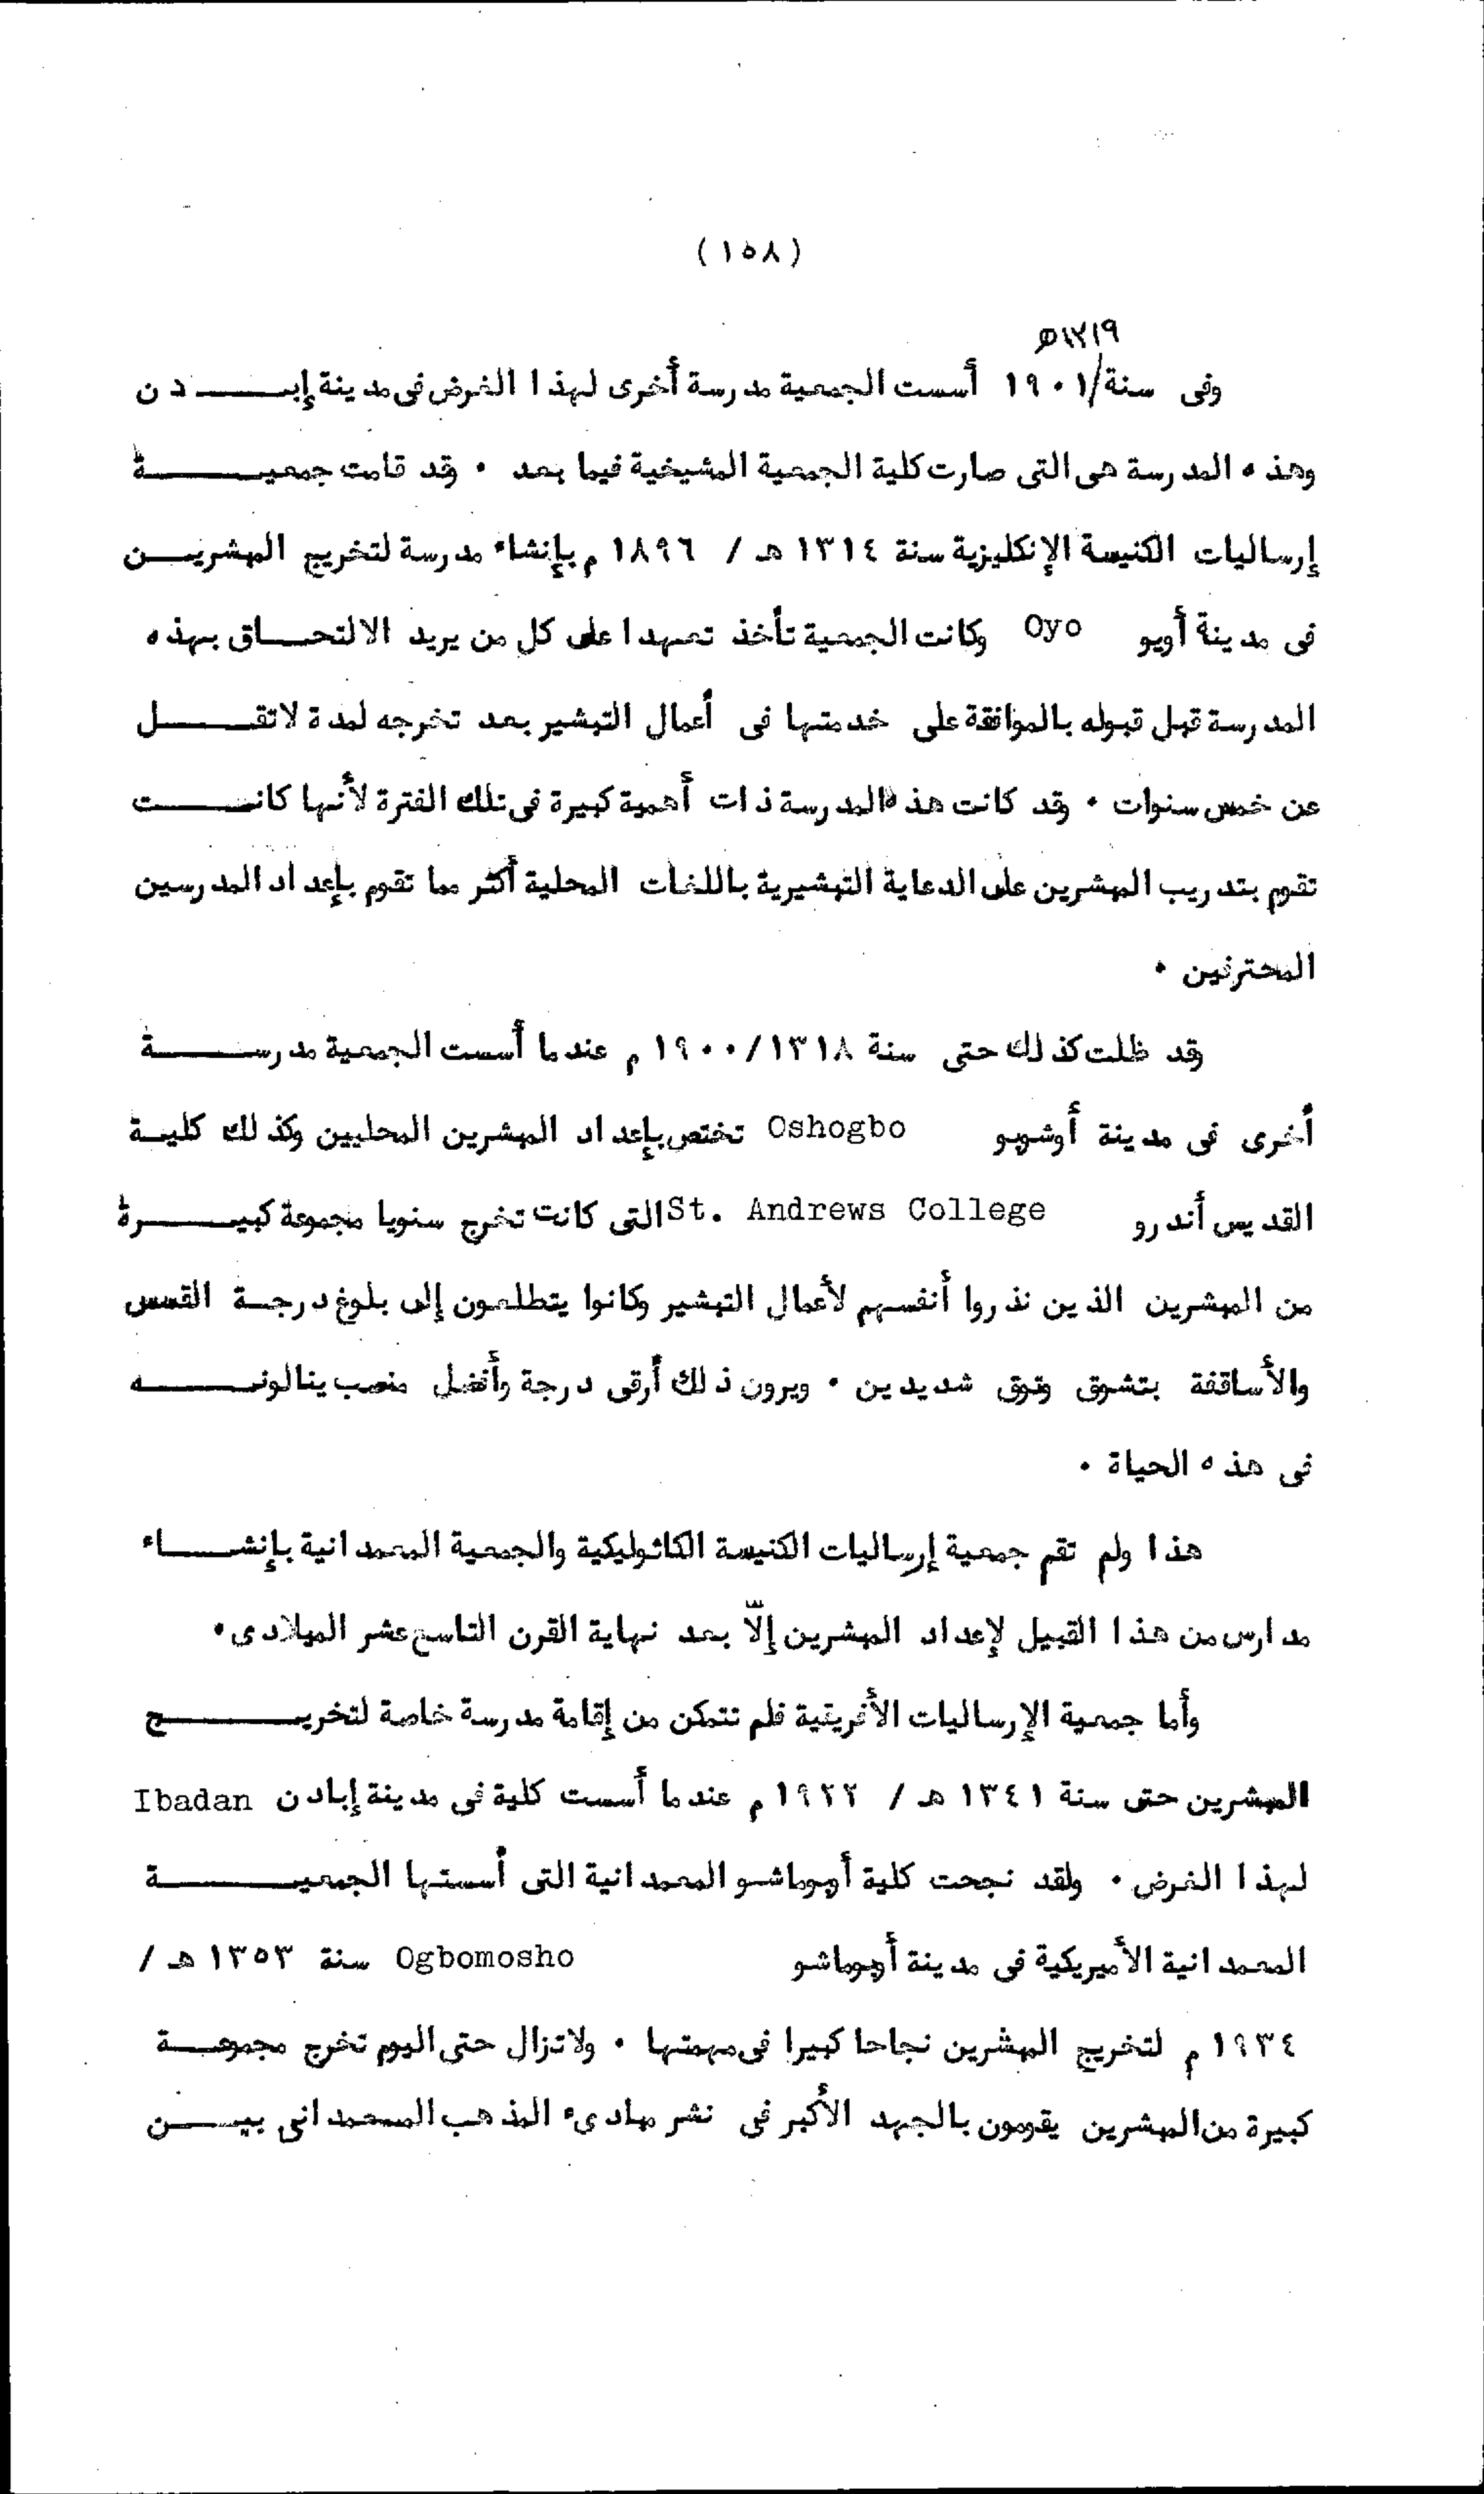 (١٥٨)
١٣١٩هـ
وفى سنة/١٩٠١ أسست الجمعية مدرسة أخرى لهذا الغرض فى مدينة إبــــدن
وهذه المدرسة هى التى صارت كلية الجمعية المشيخية فيما بعد . وقد قامت جمعيــــة
إرساليات الكنيسة الإنكليزية سنة ١٣١٤ هـ / ١٨٩٦ م بإنشاء مدرسة لتخريج المبشريــن
فى مدينة أويو Oyo وكانت الجمعية تأخذ تعهدا على كل من يريد الالتحــاق بهذه
المدرسة قبل قبوله بالموافقة على خدمتها فى أعمال التبشير بعد تخرجه لمدة لاتقــــل
عن خمس سنوات . وقد كانت هذه المدرسة ذات أهمية كبيرة فى تلك الفترة لأنها كانــــت
تقوم بتدريب المبشرين على الدعاية التبشيرية باللغات المحلية أكثر مما تقوم بإعداد المدرسين
المحترفين .
وقد ظلت كذلك حتى سنة ١٣١٨/١٩٠٠ م عندما أسست الجمعية مدرســــة
أخرى فى مدينة أوشوبو Oshogbo تختص بإعداد المبشرين المحليين وكذلك كليــة
القديس أندرو St. Andrews College التى كانت تخرج سنويا مجموعة كبيــــرة
من المبشرين الذين نذروا أنفسهم لأعمال التبشير وكانوا يتطلعون إلى بلوغ درجــة القسس
والأساقفة بتشوق وتوق شديدين . ويرون ذلك أرقى درجة وأفضل منصب ينالونــــه
فى هذه الحياة .
هذا ولم تقم جمعية إرساليات الكنيسة الكاثوليكية والجمعية المعمدانية بإنشــــاء
مدارس من هذا القبيل لإعداد المبشرين إلاّ بعد نهاية القرن التاسع عشر الميلادى .
وأما جمعية الإرساليات الأفريقية فلم تتمكن من إقامة مدرسة خاصة لتخريــــج
المبشرين حتى سنة ١٣٤١ هـ / ١٩٢٢ م عندما أسست كلية فى مدينة إبادن Ibadan
لهذا الغرض . ولقد نجحت كلية أوبوماشـو المعمدانية التى أسستها الجمعيــــة
المعمدانية الأميريكية فى مدينة أوبوماشو Ogbomosho سنة ١٣٥٣ هـ /
١٩٣٤ م لتخريج المبشرين نجاحا كبيرا فى مهمتها . ولاتزال حتى اليوم تخرج مجموعــة
كبيرة من المبشرين يقومون بالجهد الأكبر فى نشر مبادىء المذهب المعمدانى بيــــن